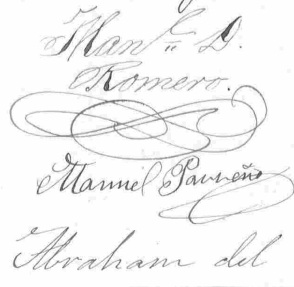 Man.l D.
Romero.
Manuel Parreño
Abraham del